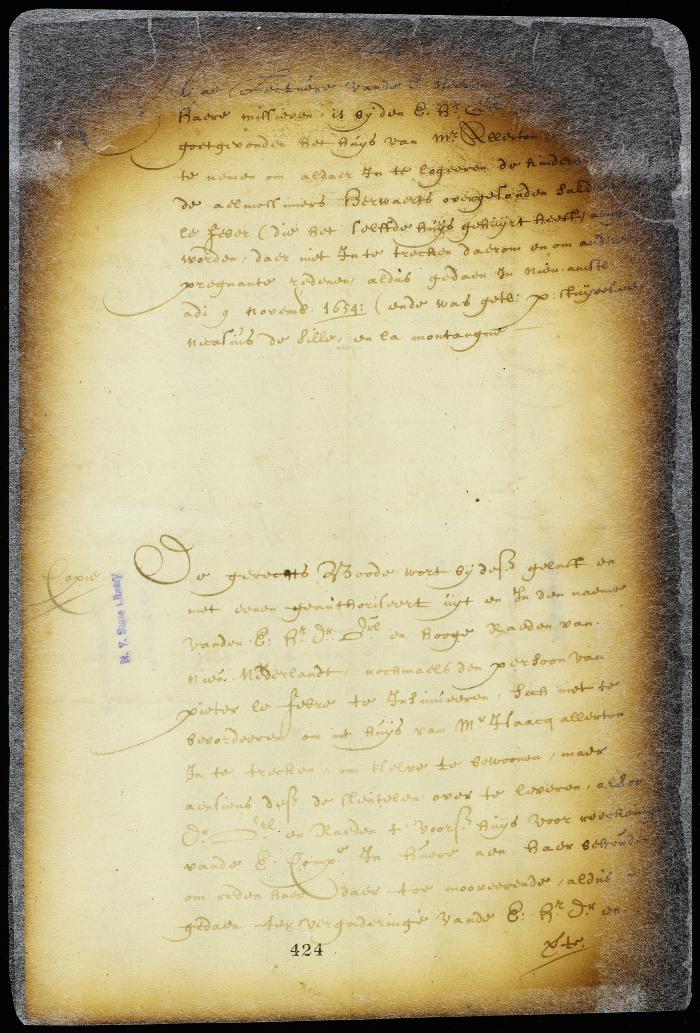 Lecture vande E. Heeren
haere missieven, is byden E. Hr
goetgevonden het huys van Mr Allerton
te nemen om aldaer In te logeeren de kindere
de aelmossiniers herwaerts overgesonden
le feber (die het selffde huys gehuyrt heeft,
worden, daer niet Inte trecken daerom en om andere
pregnante redenen, aldus gedaen In Nieu. amst.
adj 9 Novemb. 1654: (ende was get: P: Stuyvesant
Nicasius de Sille, en la montangne
Copie
De gerechts Boode wort by desr gelast en
met eenen geauthoriseert uyt en In den naeme
vanden E: Hr Dr. Grl en hooge Raeden van
Nieu. Nederlandt, nochmaels den persoon van
pieter le febre te Insinueeren, sich niet te
bevorderen om 't huys van Mr Isaacq allerton
In te trecken, om tselve te bewoonen, maer
aensiens desr de sleutelen over te leveren, alsoo
Dr Grl en Raeden t voorsr huys voor reeckening
vande E. Compe In huere aen haer behouden
om reden haer daer toe mooveerende, aldus
gedaen ter vergaderinge vande E: Hr Dr en
N. Y. State Library
424